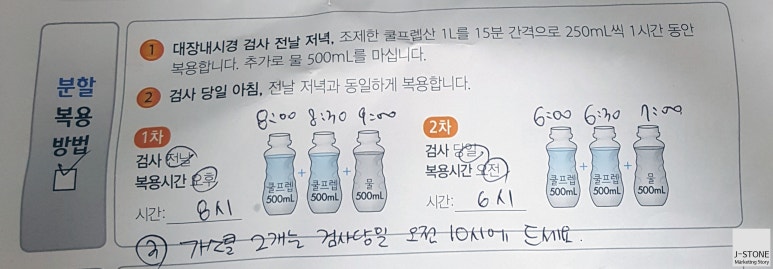 분할
복용
방법
1 대장내시경 검사 전날 저녁, 조제한 쿨프렙산 1L를 15분 간격으로 250mL씩 1시간 동안
복용합니다. 추가로 물 500mL를 마십니다.
2 검사 당일 아침, 전날 저녁과 동일하게 복용합니다.
1차
8:00 8:30 9:00
검사 전날
복용시간 오후
시간: 8시
쿨프렙 500mL + 쿨프렙 500mL + 물 500mL
2차
6:00 6:30 7:00
검사 당일,
복용시간 오전
시간: 6시
쿨프렙 500mL + 쿨프렙 500mL + 물 500mL
가스콜 2개는 검사당일 오전 10시에 드세요.
J-STONE
Marketing Story